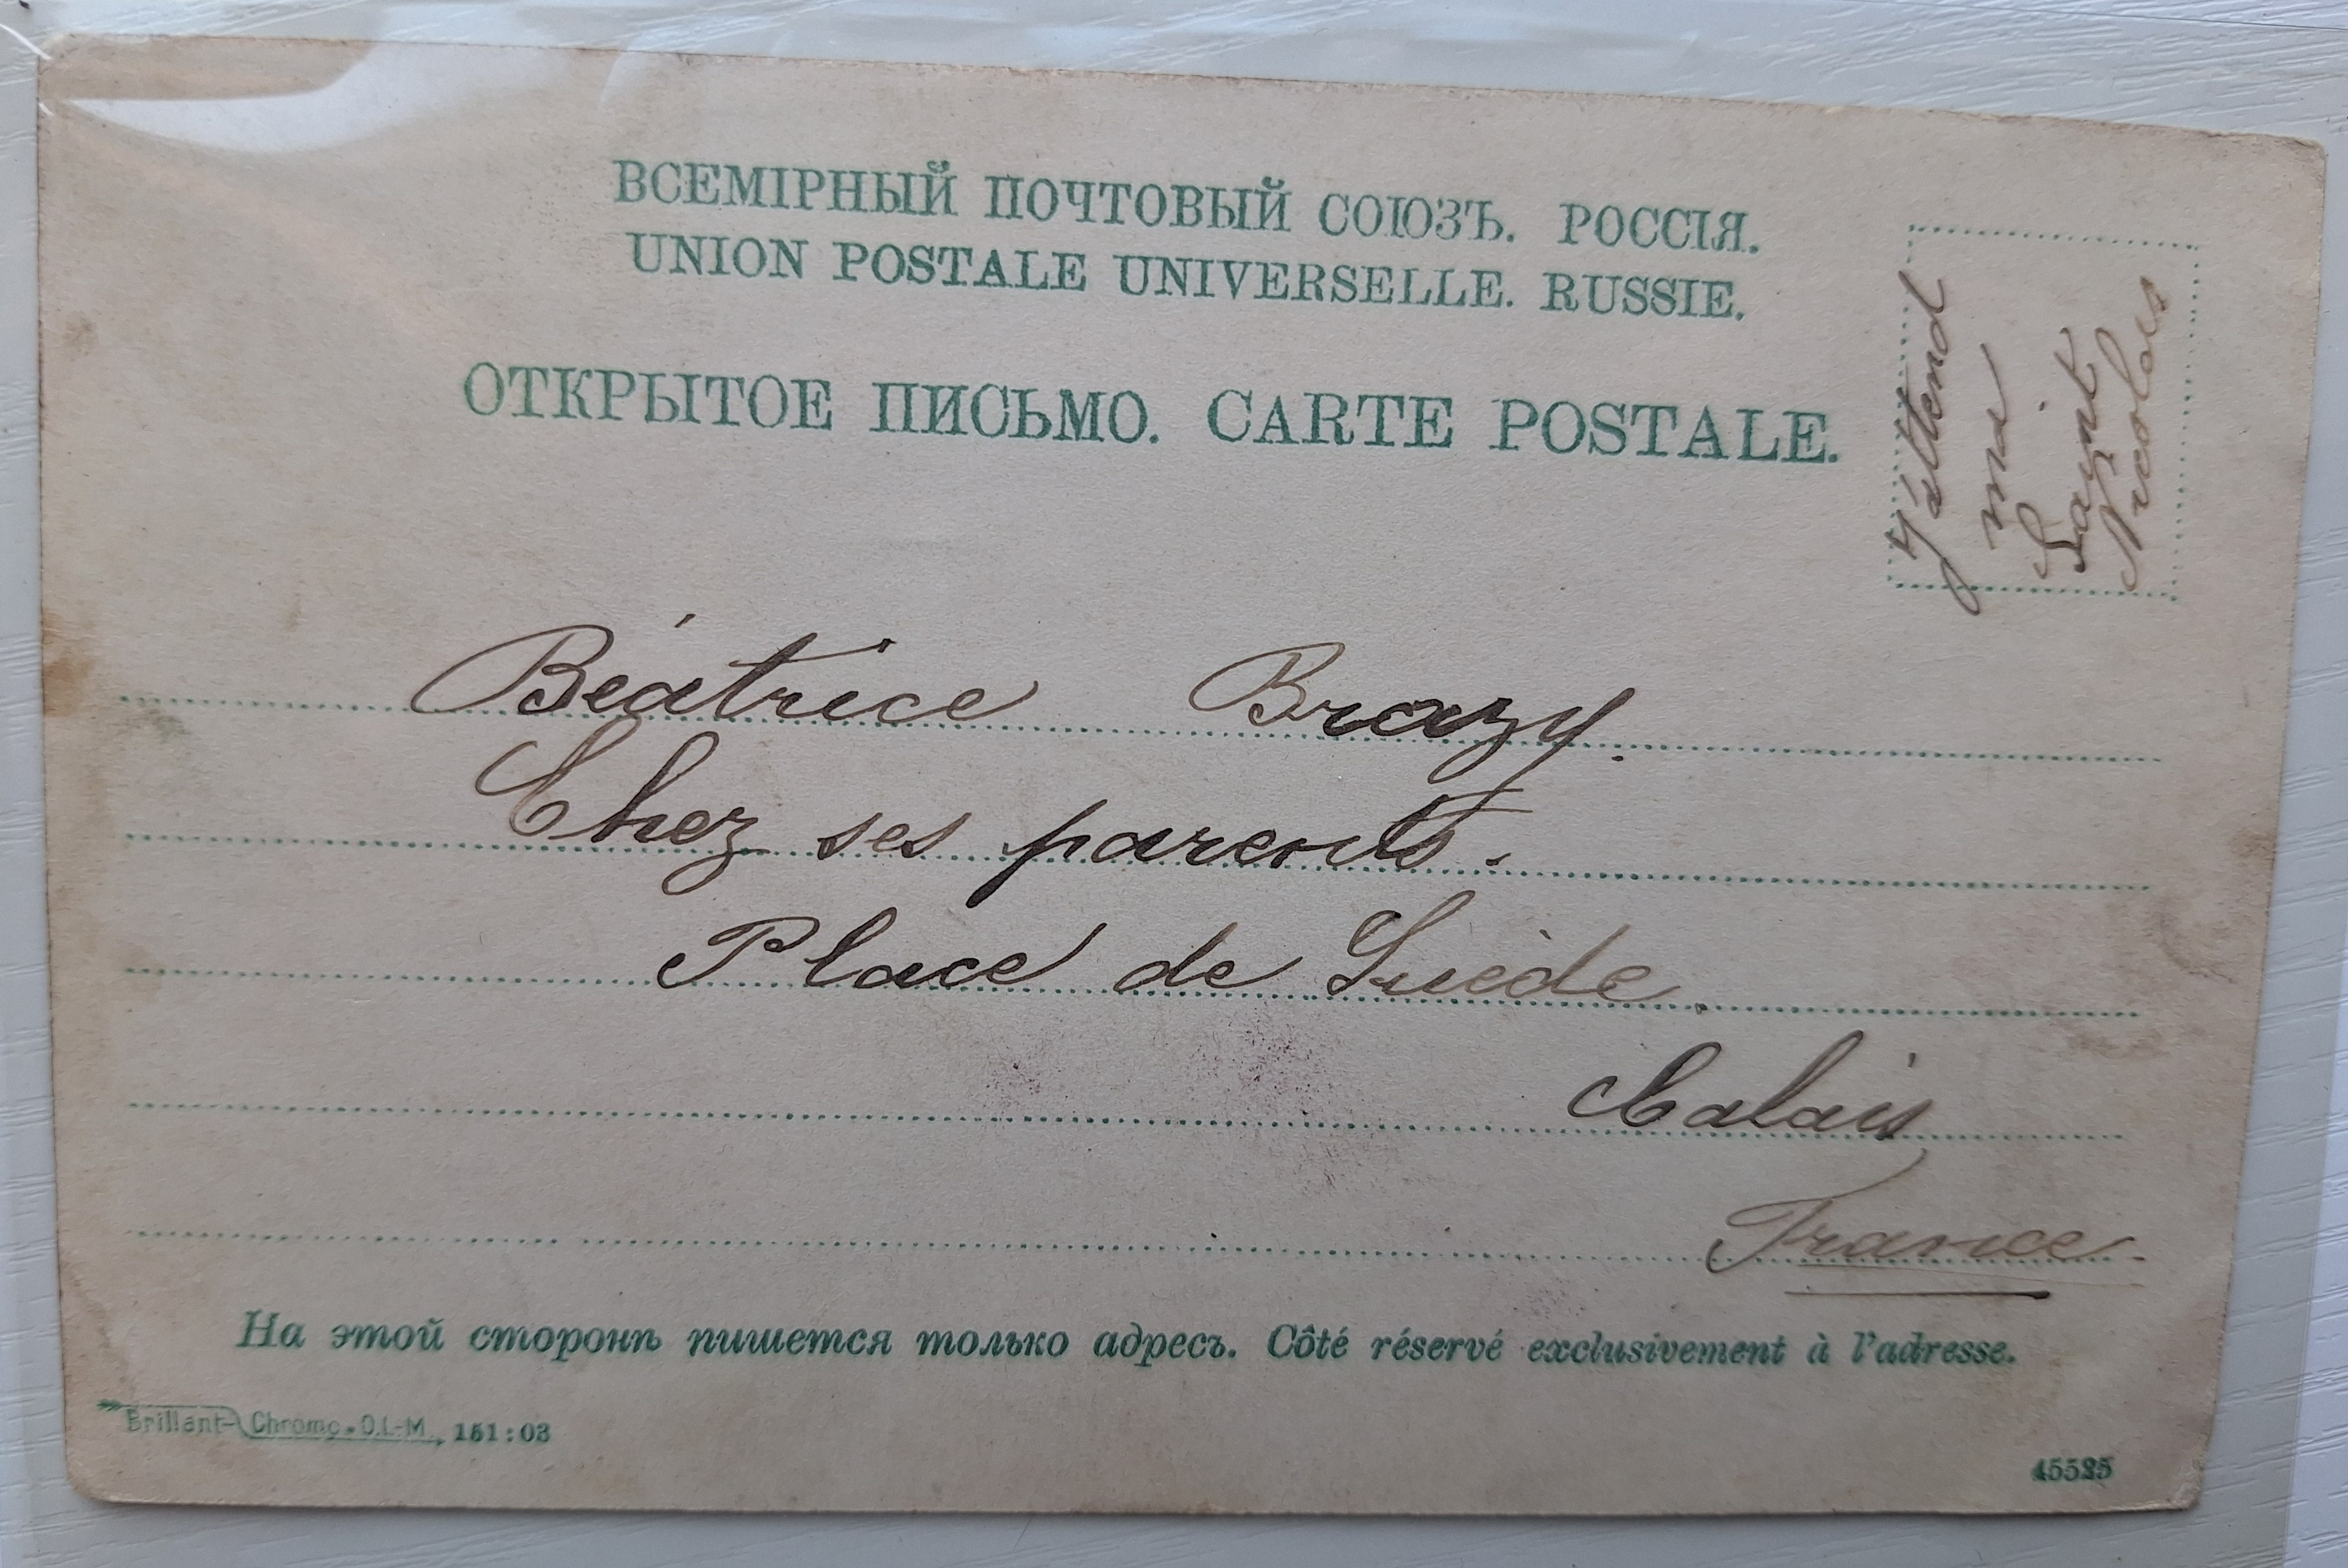 ВСЕМІРНЫЙ ПОЧТОВЫЙ СОЮЗЪ. РОССІЯ.
UNION POSTALE UNIVERSELLE. RUSSIE.
ОТКРЫТОЕ ПИСЬМО. CARTE POSTALE.
J'attend
ma
Saint
Nicolas
Béatrice Brazy.
Chez ses parents.
Place de Suède.
Calais
France.
На этой сторонѣ пишется только адресъ. Côté réservé exclusivement à l'adresse.
Brillant-Chromo. O.L-M. 151:03
45525